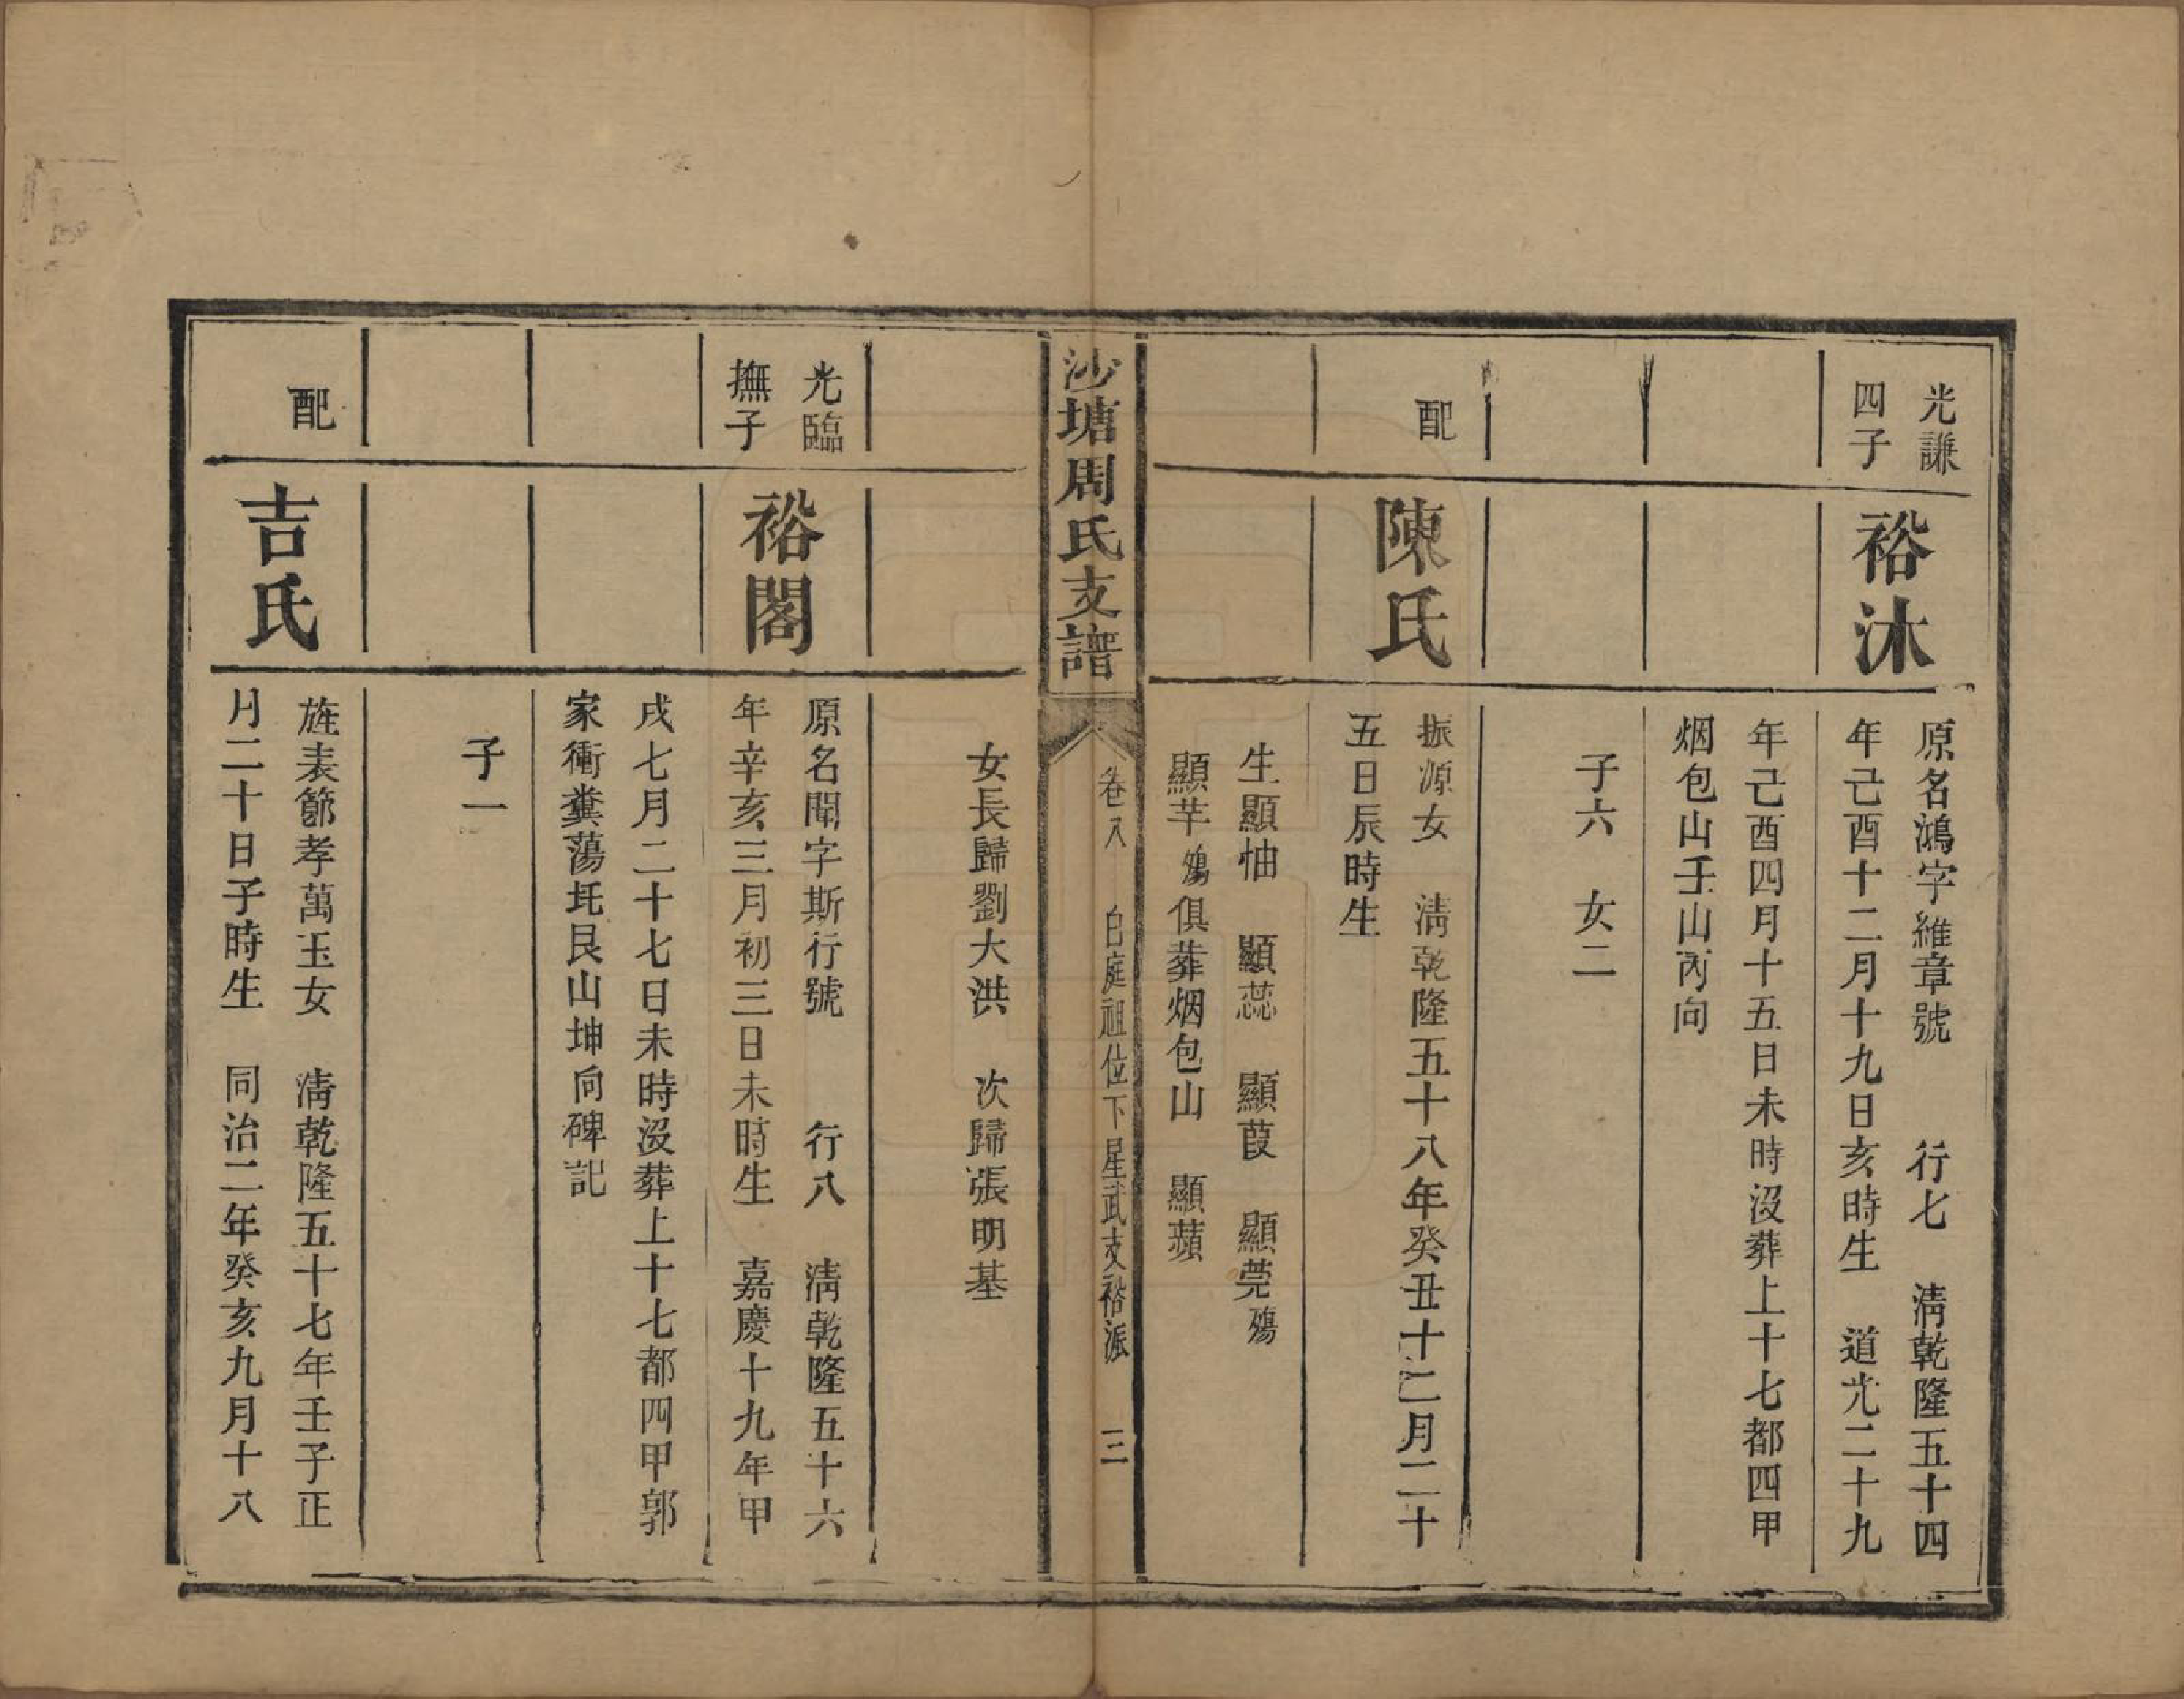 光謙
四子
裕沐
原名鴻字維章號　行七　清乾隆五十四
年己酉十二月十九日亥時生　道光二十九
年己酉四月十五日未時沒葬上十七都四甲
烟包山壬山丙向
子六　女二
配
陳氏
振源女　清乾隆五十八年癸丑十二月二十
五日辰時生
生顯怞　顯蕊　顯葭　顯莞殤
顯芊殤俱葬烟包山　顯蘋
沙塘周氏支譜
卷八　白庭祖位下星武支裕派　三
女長歸劉大洪　次歸張明基
光臨
撫子
裕閣
原名聞字斯行號　行八　清乾隆五十六
年辛亥三月初三日未時生　嘉慶十九年甲
戌七月二十七日未時沒葬上十七都四甲郭
家衝糞蕩坵艮山坤向碑記
子一
配
吉氏
旌表節孝萬玉女　清乾隆五十七年壬子正
月二十日子時生　同治二年癸亥九月十八